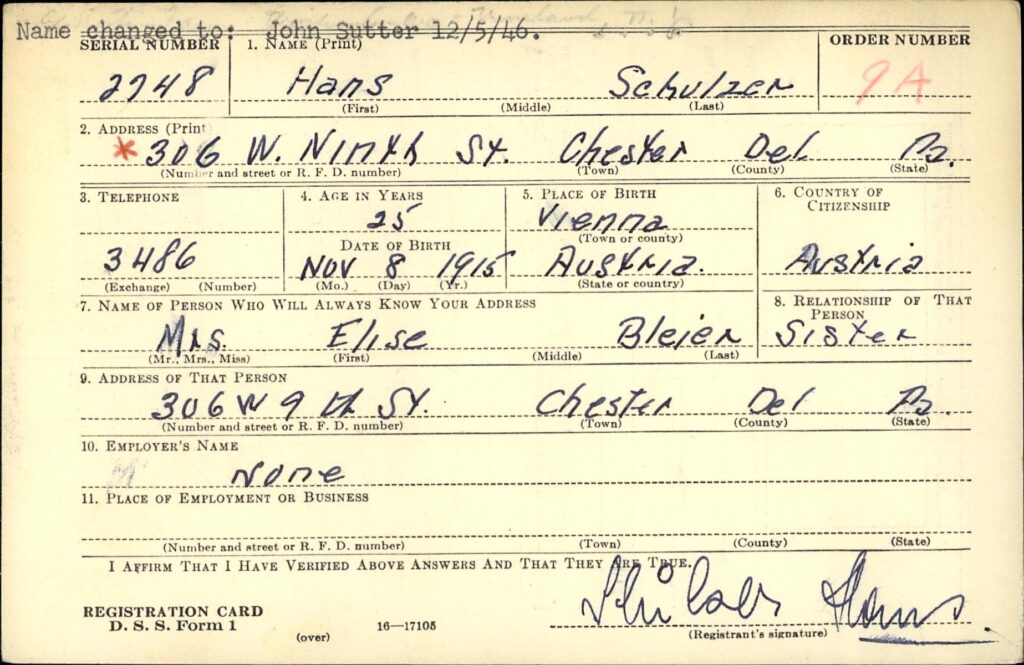 Name changed to: John Sutter 12/5/46.
SERIAL NUMBER 1. NAME (Print) ORDER NUMBER
2748 Hans Schulzer 9A
(First) (Middle) (Last)
2. ADDRESS (Print
* 306 W. Ninth St. Chester Del Pa.
(Number and street or R. F. D. number) (Town) (County) (State)
3. TELEPHONE 4. AGE IN YEARS 5. PLACE OF BIRTH 6. COUNTRY OF CITIZENSHIP
25 Vienna
(Town or county)
DATE OF BIRTH
3486 Nov 8 1915 Austria. Austria
(Exchange) (Number) (Mo.) (Day) (Yr.) (State or country)
7. NAME OF PERSON WHO WILL ALWAYS KNOW YOUR ADDRESS 8. RELATIONSHIP OF THAT PERSON
Mrs. Elise Bleier Sister
(Mr., Mrs., Miss) (First) (Middle) (Last)
9. ADDRESS OF THAT PERSON
306 W 9 th St. Chester Del Pa.
(Number and street or R. F. D. number) (Town) (County) (State)
10. EMPLOYER'S NAME
None
11. PLACE OF EMPLOYMENT OR BUSINESS
(Number and street or R. F. D. number) (Town) (County) (State)
I AFFIRM THAT I HAVE VERIFIED ABOVE ANSWERS AND THAT THEY ARE TRUE.
Hans
REGISTRATION CARD
D. S. S. Form 1
(over) 16—17105 (Registrant's signature)